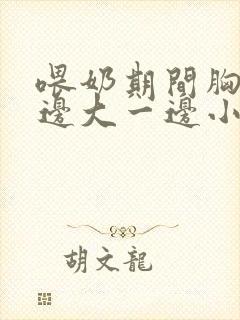 喂奶期間胸
邊大一邊小
胡文龍